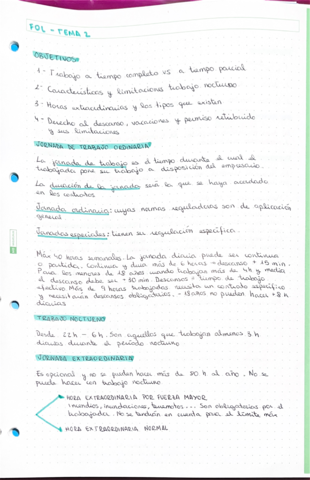 FOL - TEMA 2
OBJETIVOS
1 - Trabajo a tiempo completo vs a tiempo parcial
2 - Características y limitaciones trabajo nocturno
3 - Horas extraordinarias y los tipos que existen
4 - Derecho al descanso, vacaciones y permiso retribuido
y sus limitaciones
JORNADA DE TRABAJO ORDINARIA
La jornada de trabajo es el tiempo durante el cual el
trabajador pone su trabajo a disposición del empresario.
La duración de la jornada será la que se haya acordado
en los contratos
Jornada ordinaria: cuyas normas reguladoras son de aplicación
general
Jornadas especiales: tienen su regulación específica.
Máx 40 horas semanales. La jornada diaria puede ser continua
o partida. Continua y dura más de 6 horas → descanso + 15 min.
Para los menores de 18 años cuando trabajan más de 4h y media
el descanso debe ser + 30 min. Descansos = tiempo de trabajo
efectivo. Más de 9 horas trabajadas necesita un contrato específico
y necesitarán descansos obligatorios. - 18 años no pueden hacer + 8 h
diarias
TRABAJO NOCTURNO
Desde 22h - 6h. Son aquellos que trabajan al menos 3 h
diarias durante el período nocturno
JORNADA EXTRAORDINARIA
Es opcional y no se pueden hacer más de 80 h al año. No se
puede hacer en trabajo nocturno
HORA EXTRAORDINARIA POR FUERZA MAYOR
incendios, inundaciones, terremotos... Son obligatorias por el
trabajador. No se tendrán en cuenta para el límite máx
HORA EXTRAORDINARIA NORMAL